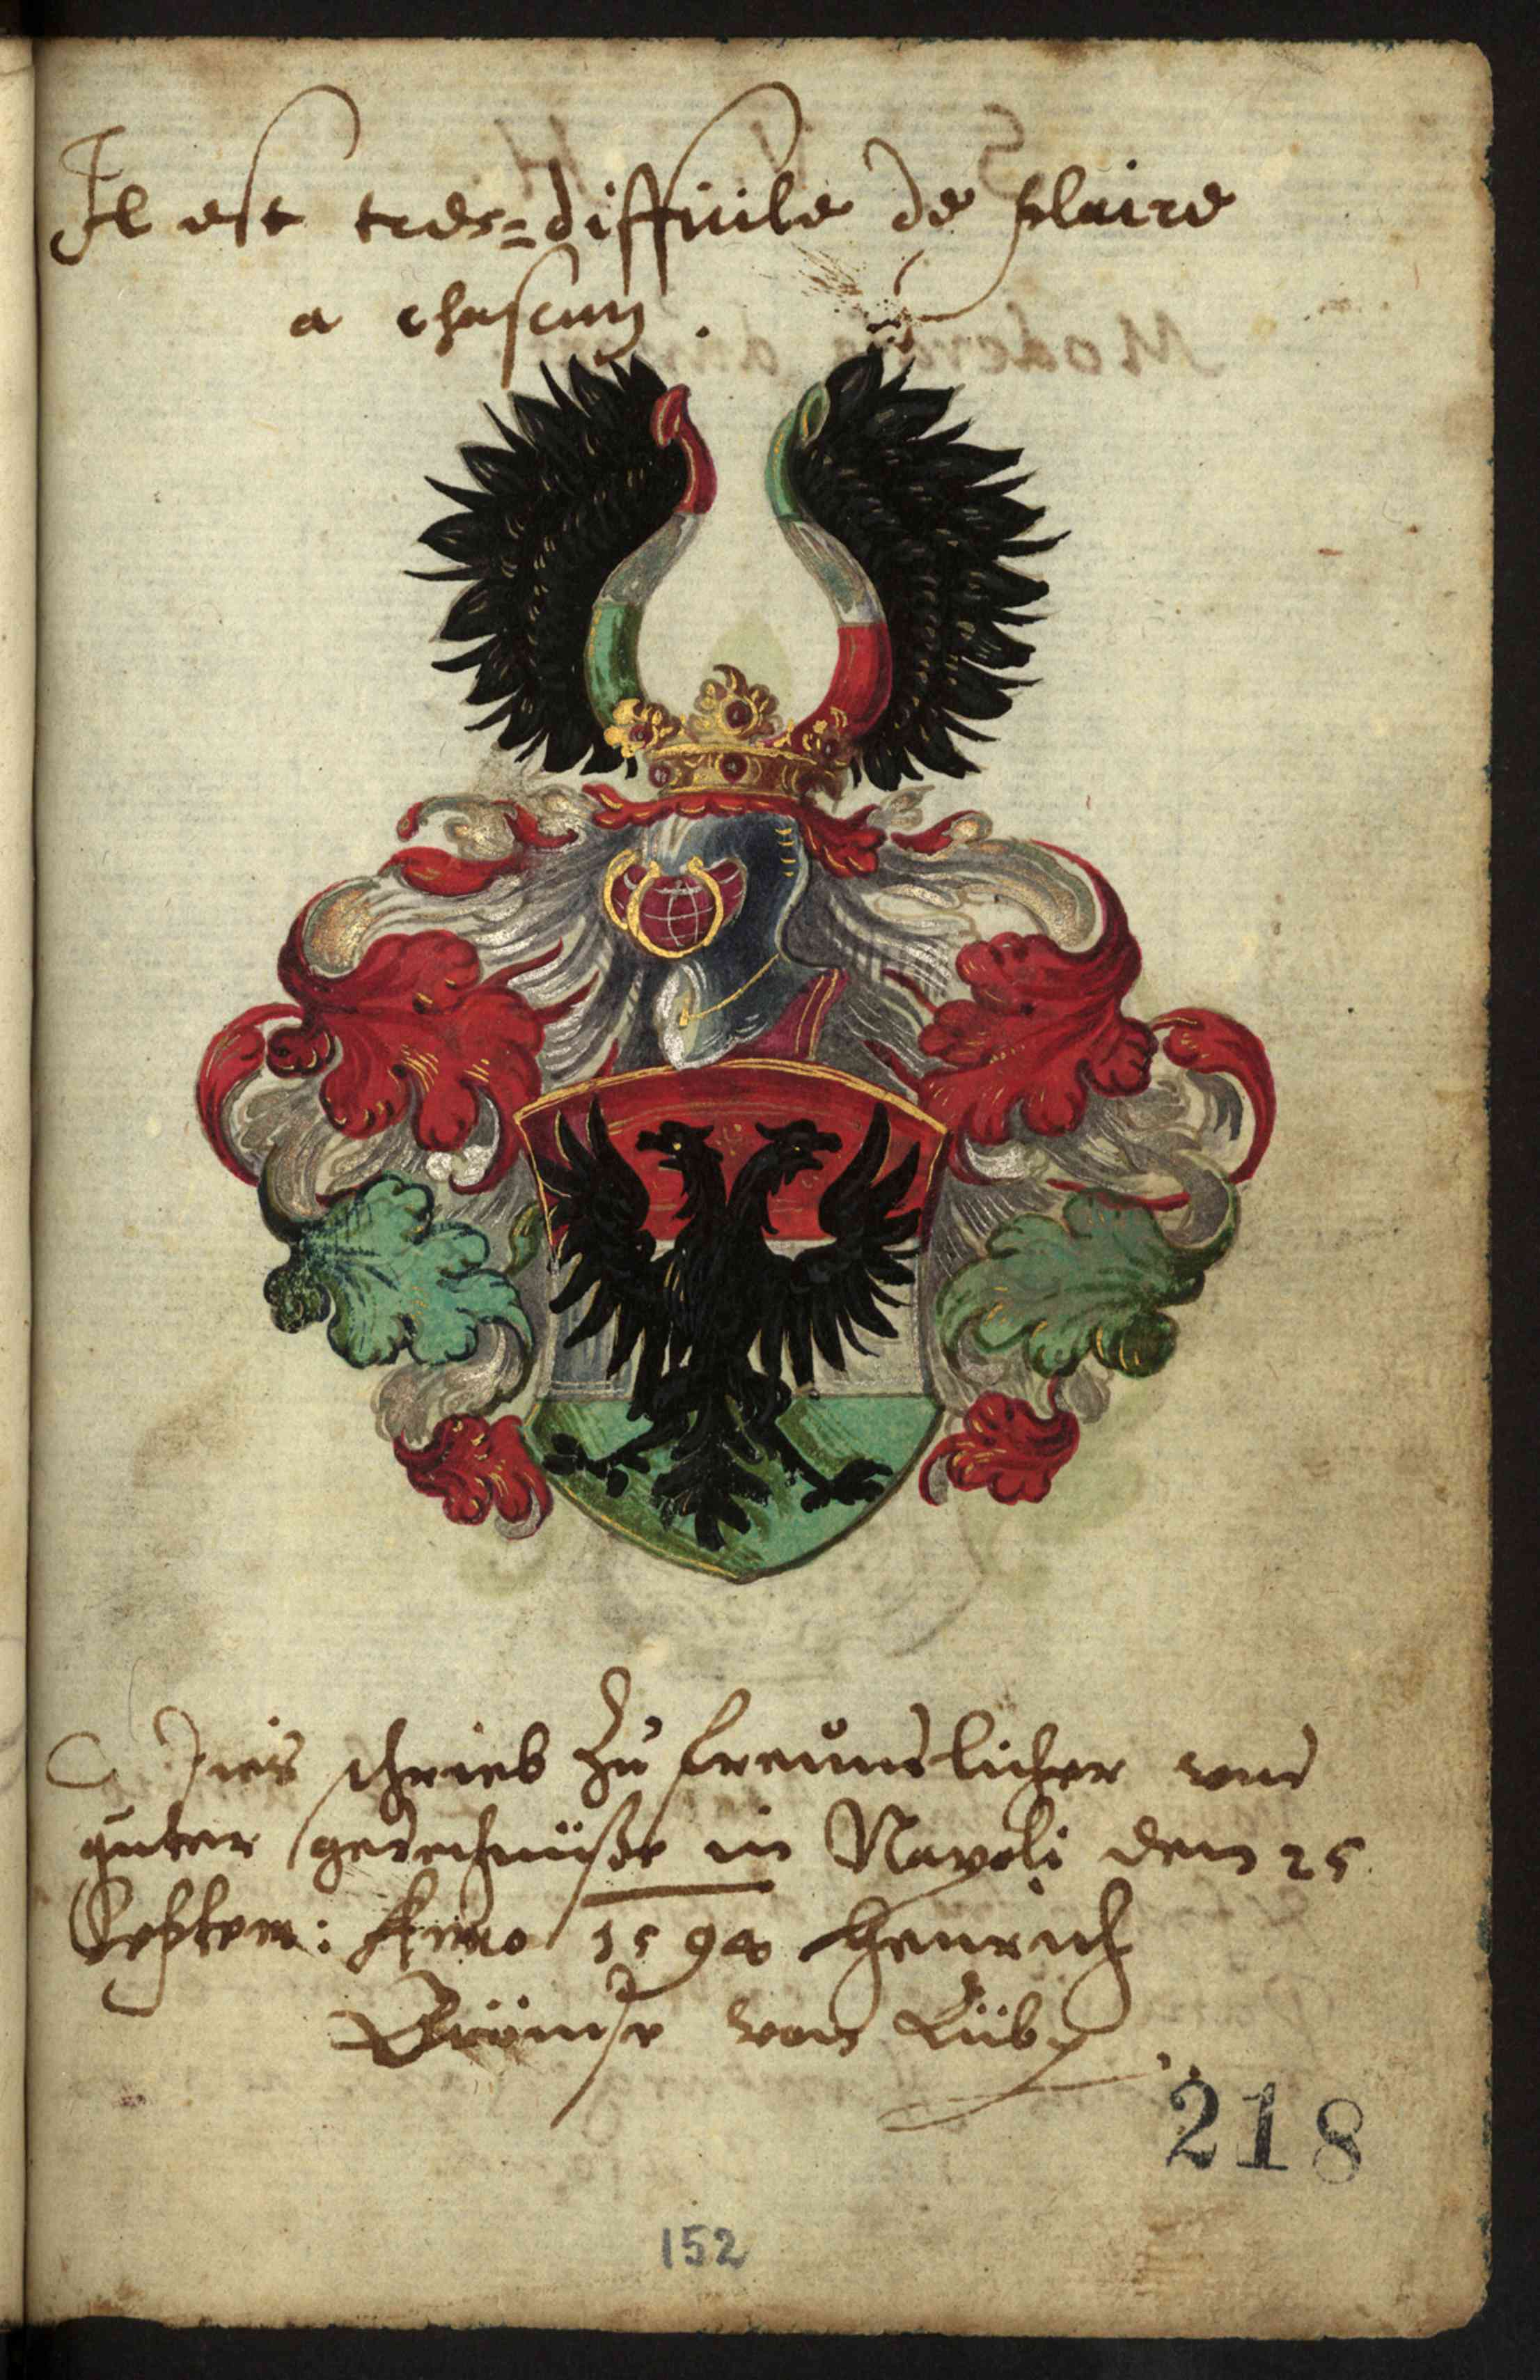 Il est tres=difficile de plaire
a chascun .
Dies schrieb zu freundlicher und
guter gedechnüße in Napoli den 25
Septem: Anno 1594 Henrich
Brömse von Lüb
218
152